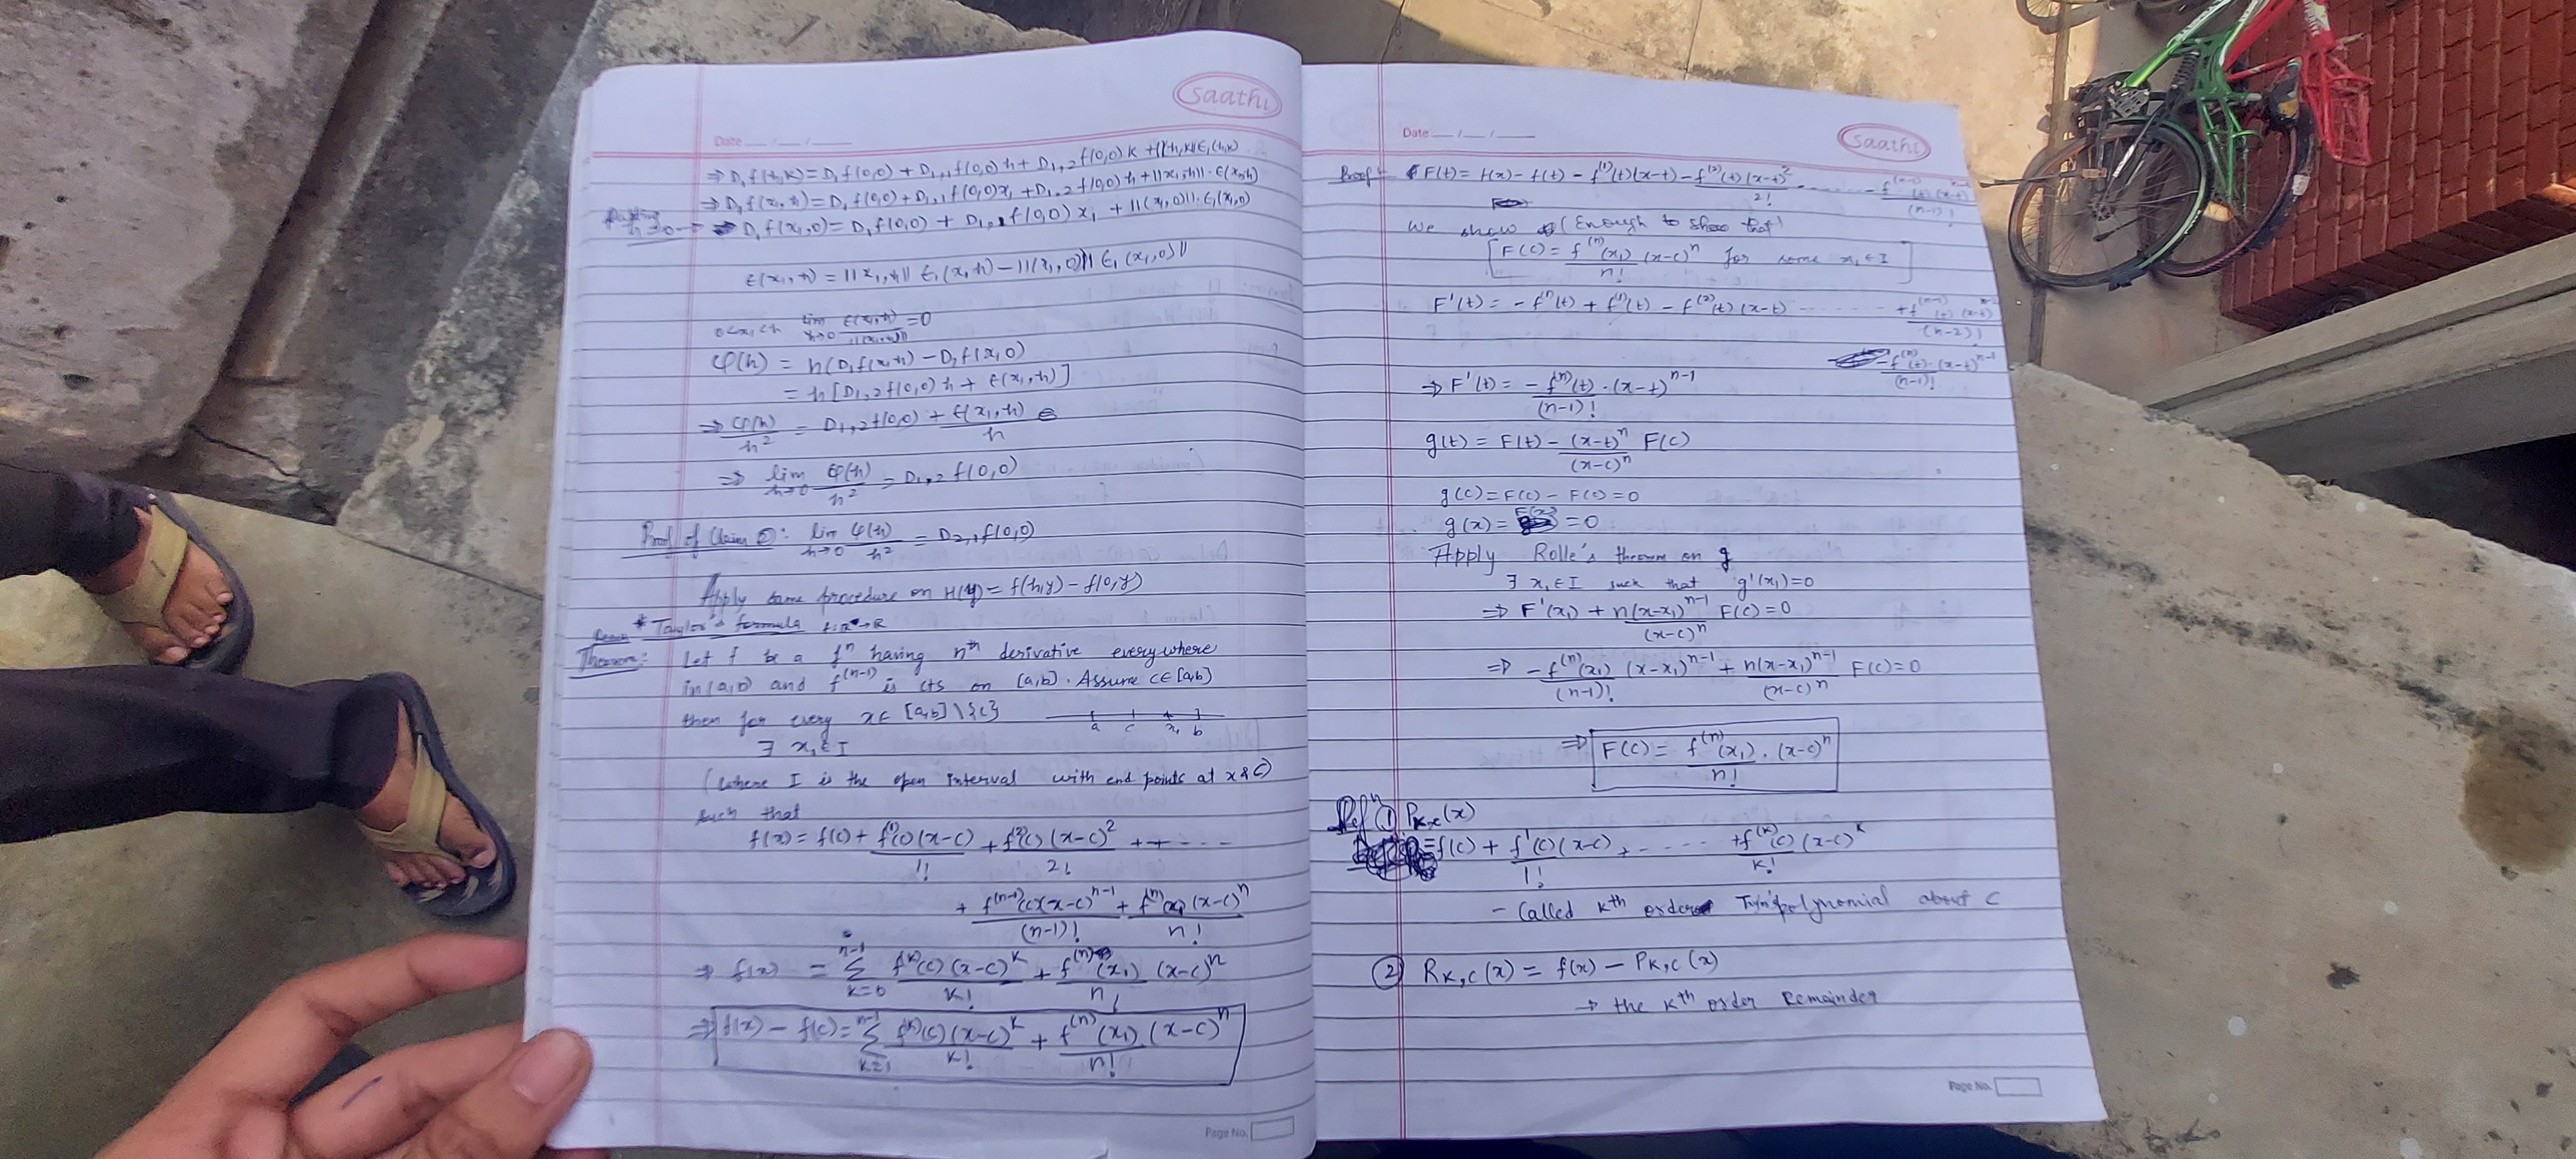 saathi
Date __/__/__
⇒ D₁f(h,k) = D₁f(0,0) + D₁,₁f(0,0)h + D₁,₂f(0,0)k + ||h,k||ϵ₁(h,k)
⇒ D₁f(x₁,h) = D₁f(0,0) + D₁,₁f(0,0)x₁ + D₁,₂f(0,0)h + ||x₁,h||·ϵ(x₁,h)
Putting h=0 → ⇒ D₁f(x₁,0) = D₁f(0,0) + D₁,₁f(0,0)x₁ + ||(x₁,0)||·ϵ₁(x₁,0)
ϵ(x₁,h) = ||x₁,h|| ϵ₁(x₁,h) − ||(x₁,0)|| ϵ₁(x₁,0)
0<x₁<h lim h→0 ϵ(x₁,h)/||(x₁,h)|| = 0
φ(h) = h(D₁f(x₁,h) − D₁f(x₁,0)
= h[D₁,₂f(0,0)h + ϵ(x₁,h)]
⇒ φ(h)/h² = D₁,₂f(0,0) + ϵ(x₁,h)/h
⇒ lim h→0 φ(h)/h² = D₁,₂f(0,0)
Proof of Claim ②: lim h→0 φ(h)/h² = D₂,₁f(0,0)
Apply same procedure on H(y) = f(h,y) − f(0,y)
* Taylor's formula f:R→R
Theorem: Let f be a fⁿ having nth derivative everywhere
in (a,b) and f⁽ⁿ⁻¹⁾ is cts on [a,b]. Assume c∈[a,b]
then for every x∈[a,b]\{c}
a c x₁ b
∃ x₁∈I
(where I is the open interval with end points at x & c)
such that
f(x) = f(c) + f⁽¹⁾(c)(x−c)/1! + f⁽²⁾(c)(x−c)²/2! + + - - - -
+ f⁽ⁿ⁻¹⁾(c)(x−c)ⁿ⁻¹/(n−1)! + f⁽ⁿ⁾(x₁)(x−c)ⁿ/n!
⇒ f(x) = Σ k=0 n−1 f⁽ᵏ⁾(c)(x−c)ᵏ/k! + f⁽ⁿ⁾(x₁)/n! (x−c)ⁿ
⇒ f(x) − f(c) = Σ k=1 n−1 f⁽ᵏ⁾(c)(x−c)ᵏ/k! + f⁽ⁿ⁾(x₁)/n! (x−c)ⁿ
Page No.
saathi
Date __/__/__
Proof:- F(t) = f(x) − f(t) − f⁽¹⁾(t)(x−t) − f⁽²⁾(t)(x−t)²/2! - - - - − f⁽ⁿ⁻¹⁾(t)(x−t)ⁿ⁻¹/(n−1)!
We show (Enough to show that)
[F(c) = f⁽ⁿ⁾(x₁)/n! (x−c)ⁿ for some x₁∈I]
F'(t) = −f⁽¹⁾(t) + f⁽¹⁾(t) − f⁽²⁾(t)(x−t) - - - - + f⁽ⁿ⁻¹⁾(t)(x−t)ⁿ⁻²/(n−2)!
− f⁽ⁿ⁾(t)·(x−t)ⁿ⁻¹/(n−1)!
⇒ F'(t) = −f⁽ⁿ⁾(t)/(n−1)! · (x−t)ⁿ⁻¹
g(t) = F(t) − (x−t)ⁿ/(x−c)ⁿ F(c)
g(c) = F(c) − F(c) = 0
g(x) = F(x) = 0
Apply Rolle's theorem on g
∃ x₁∈I such that g'(x₁) = 0
⇒ F'(x₁) + n(x−x₁)ⁿ⁻¹/(x−c)ⁿ F(c) = 0
⇒ −f⁽ⁿ⁾(x₁)/(n−1)! (x−x₁)ⁿ⁻¹ + n(x−x₁)ⁿ⁻¹/(x−c)ⁿ F(c) = 0
⇒ F(c) = f⁽ⁿ⁾(x₁)/n! · (x−c)ⁿ
Defⁿ ① P_{k,c}(x)
= f(c) + f'(c)(x−c)/1! + - - - - + f⁽ᵏ⁾(c)(x−c)ᵏ/k!
- Called kth order polynomial about c
② R_{k,c}(x) = f(x) − P_{k,c}(x)
→ the kth order Remainder
Page No.